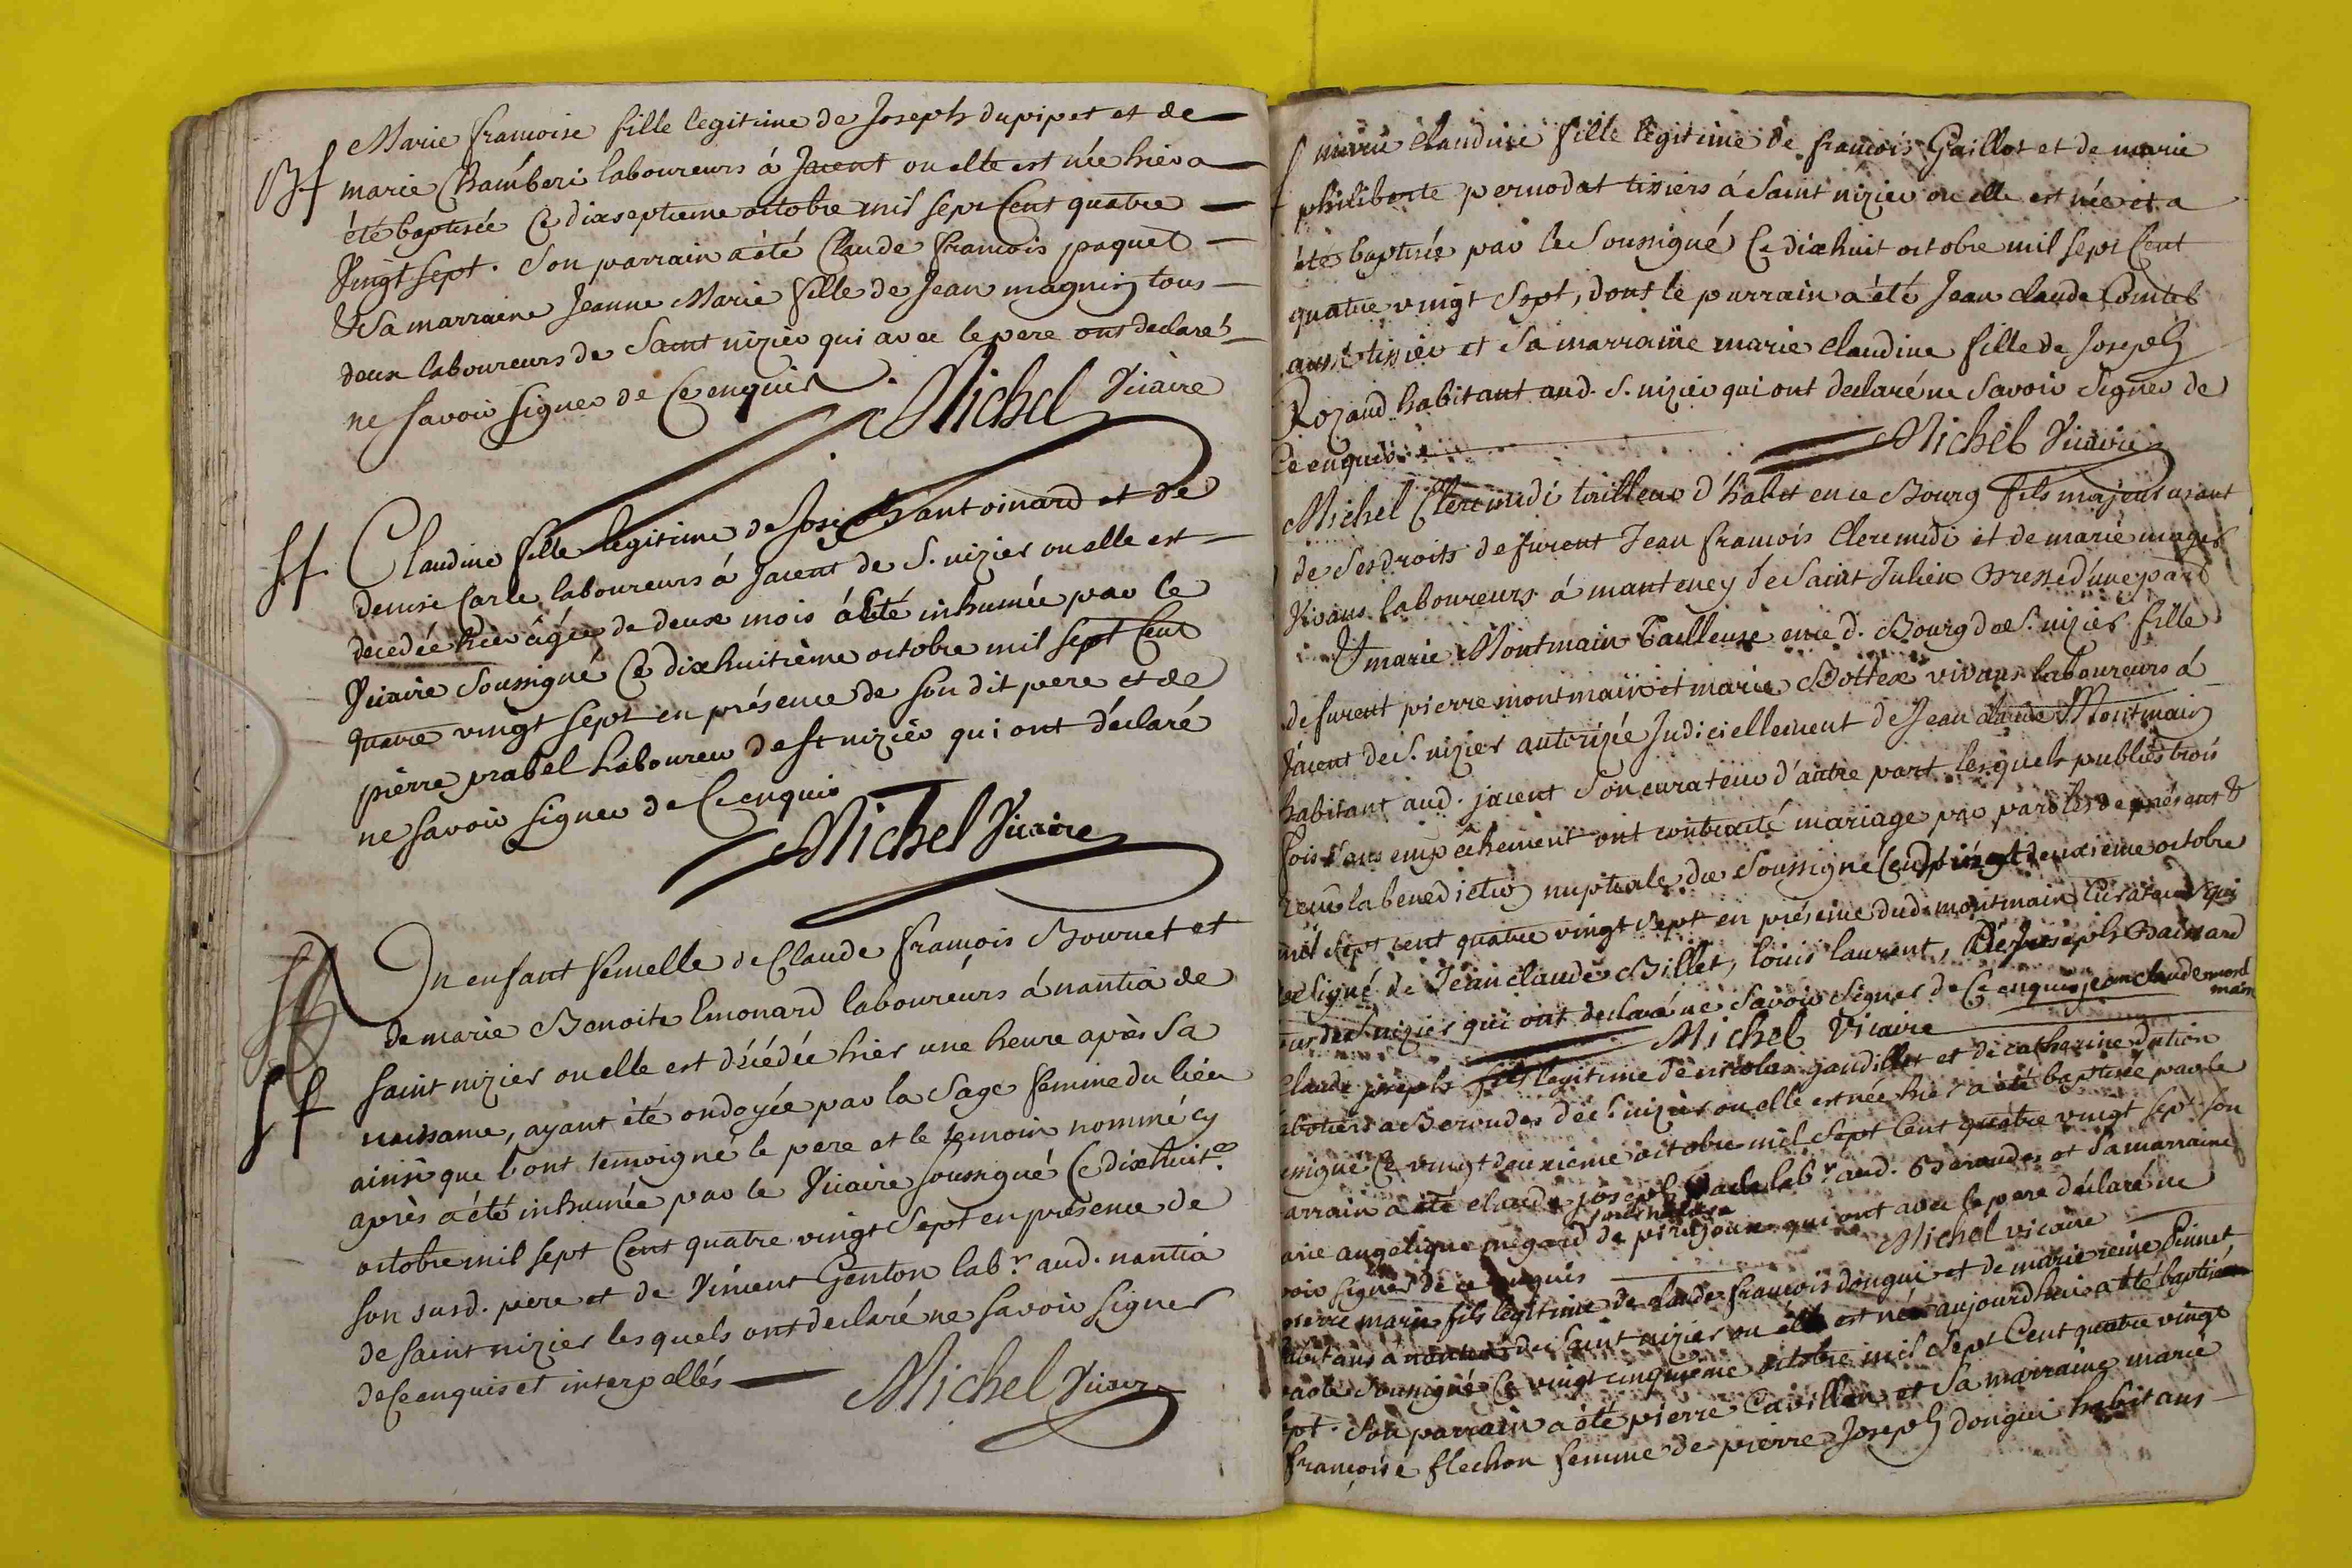 Bf
Marie francoise fille legitime de Joseph dupipet et de
marie Chamberi laboureurs á Jacent ou elle est née hier a
été baptisée Ce dix septieme octobre mil sept Cent quatre
Vingt sept. Son parrain a été Claude francois paquet
& Sa marraine Jeanne Marie fille de Jean magnin tous
deux laboureurs de Saint nizier qui avec le pere ont declaré
ne savoir signer de Ce enquis.
Michel Vicaire
Sf
Claudine fille legitime de Joseph antoinard et de
denise Carle laboureurs á Jacent de S. nizier ou elle est
decedée hier âgée de deux mois á été inhumée par le
Vicaire Soussigné Ce dix huitième octobre mil sept Cent
quatre vingt sept en présence de son dit pere et de
pierre prabel Laboureur de St nizier qui ont déclaré
ne savoir signer de Ce enquis
Michel Vicaire
Un enfant femelle de Claude françois Bournet et
de marie Benoite Emonard laboureurs á nantia de
Sf
saint nizier ou elle est décédée hier une heure après sa
naissance, ayant été ondoyée par la Sage femme du lieu
ainsi que l'ont témoigné le pere et le temoin nommé cy
après a été inhumée par le Vicaire soussigné Ce dix huit.e
octobre mil sept Cent quatre vingt Sept en présence de
son susd. pere et de Vincent Genton lab.r aud. nantia
de saint nizier lesquels ont declaré ne savoir signer
de Ce enquis et interpellés
Michel Vicaire
marie claudine fille legitime de francois Gaillot et de marie
philiberte pernodat tissiers á Saint nizier ou elle est née et a
été baptisée par le Soussigné Ce dix huit octobre mil sept Cent
quatre vingt Sept, dont le parrain a été Jean claude Comtet
aussi tissier et Sa marraine marie claudine fille de Joseph
Rozand habitant aud. S. nizier qui ont declaré ne Savoir Signer de
Ce enquis
Michel Vicaire
Michel Cleremidi tailleur d'habit en ce Bourg fils majeur usant
de Ses droits de furent Jean francois Cleremidi et de marie
vivans laboureurs á manteney de Saint Julien Bresse d'une part
& marie Montmain Tailleuse en ce d. Bourg de S. nizier fille
de furent pierre montmain et marie Bottex vivans laboureurs á
Jacent de S. nizier autorizée Judiciellement de Jean claude Montmain
habitant aud. jacent Son curateur d'autre part lesquels publiés trois
fois Sans empechement ont contracté mariage par paroles de présent &
reçu la benediction nuptiale du Soussigné Ce vingt deuxième octobre
mil Sept cent quatre vingt Sept en présence dud. montmain Curateur qui
Signé de Jean claude Billet, louis laurent, Joseph Baissard
de S. nizier qui ont declaré ne Savoir Signer de Ce enquis jean claude mont
main
Michel Vicaire
Claude joseph fils legitime de nicolas gaudillet et de catherine
a Beroudes de S. nizier ou elle est née hier a été baptisé par le
Soussigné Ce vingt deuxieme octobre mil Sept Cent quatre vingt Sept Son
parrain a été claude joseph lab.r aud. Beroudes et Sa marraine
marie angelique de qui ont avec le pere déclaré ne
Savoir signer de ce enquis
Michel vicaire
pierre marie fils legitime de claude francois dongui et de marie reine Pinnet
habitans á nantia de Saint nizier ou elle est née aujourdhui a été baptisé
par le Soussigné Ce vingt cinquieme octobre mil Sept Cent quatre vingt
Sept. Son parrain a été pierre Cavillon et Sa marraine marie
françoise flechon femme de pierre Joseph dongui habitans